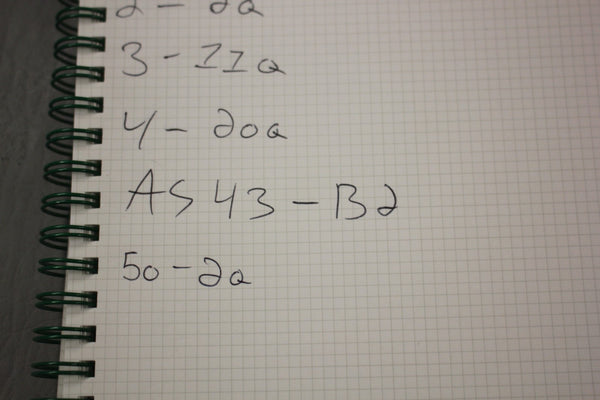 2 - 2a
3 - II a
4 - 20a
AS 43 - B2
50 - 2a